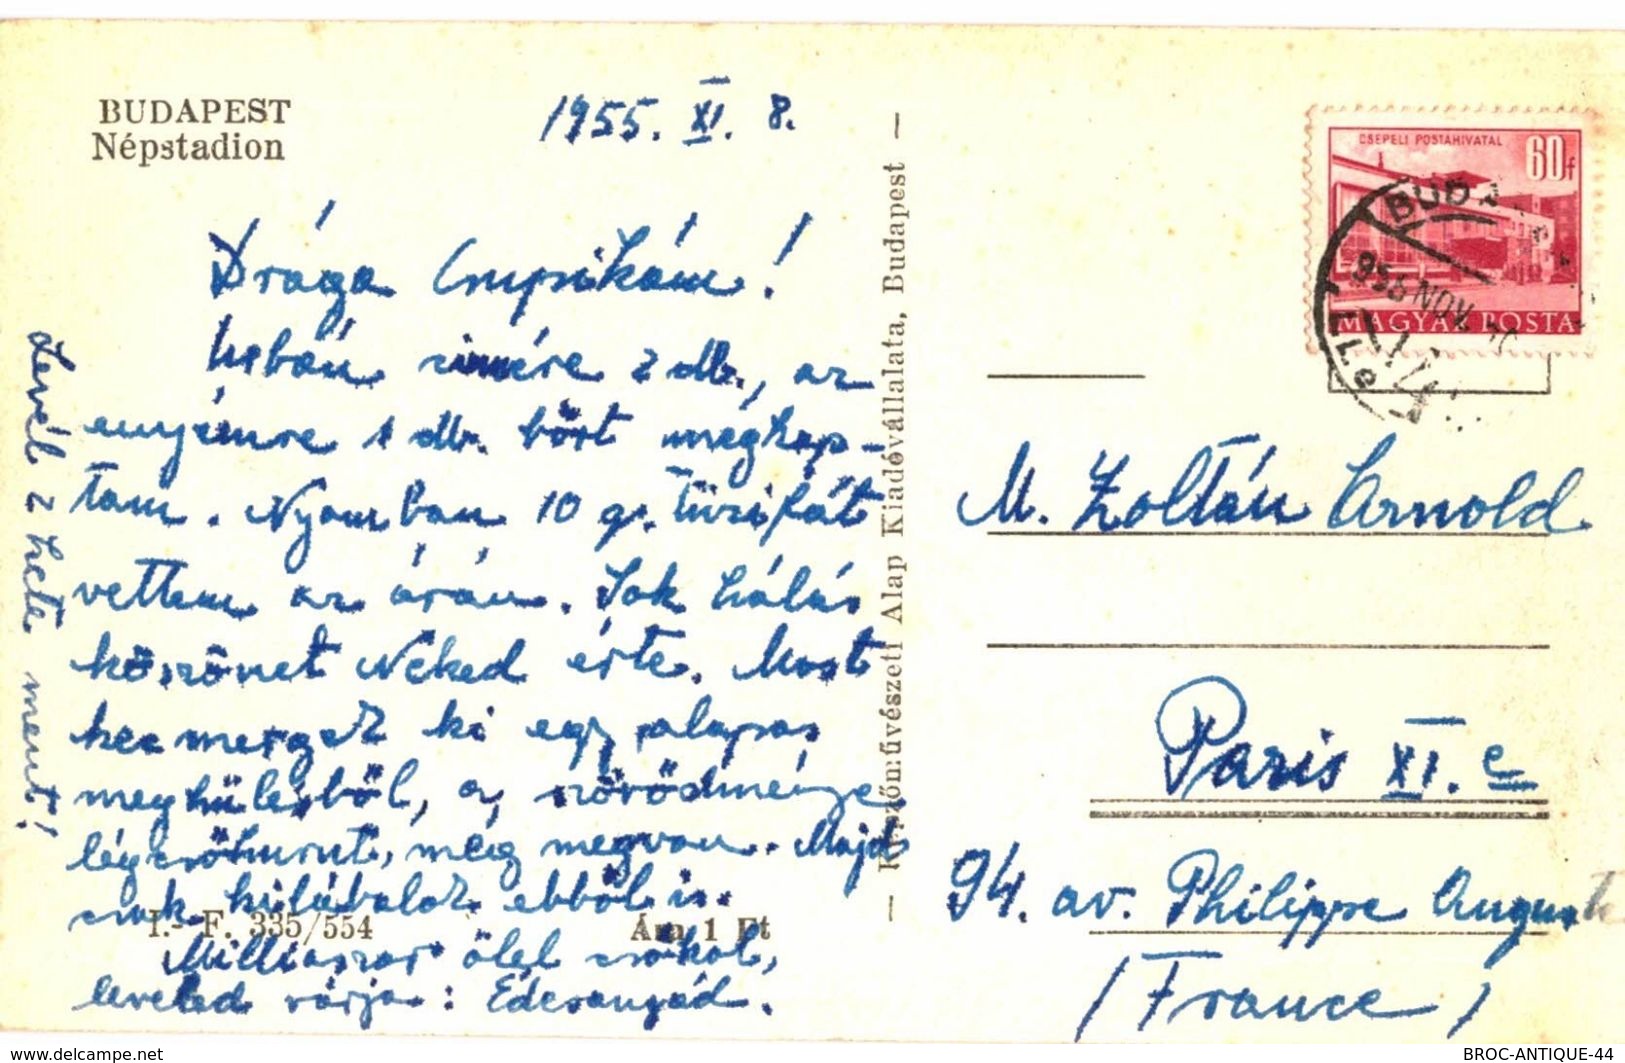 BUDAPEST
Népstadion
1955. XI. 8.
Drága Csipikám!
címére 2 db., az
enyémre 1 db. bőrt megkap-
tam. Nyomban 10 q. tűzifát
vettem az árán. Sok hálás
köszönet Neked érte. Most
ki egy alapos
meghülésből, a
légcsőhurut, még megvan. Majd
csak kilábalok ebből is.
Milliószor ölel csókol,
leveled várja: Édesanyád.
Levél 2 hete ment!
I.- F. 335/554
Ára 1 Ft
— Képzőművészeti Alap Kiadóvállalata, Budapest —
CSEPELI POSTAHIVATAL
60f
MAGYAR POSTA
BUDA
NOV.
M. Zoltán Arnold
Paris XI. e
94. av. Philippe Auguste
(France)
delcampe.net
BROC-ANTIQUE-44